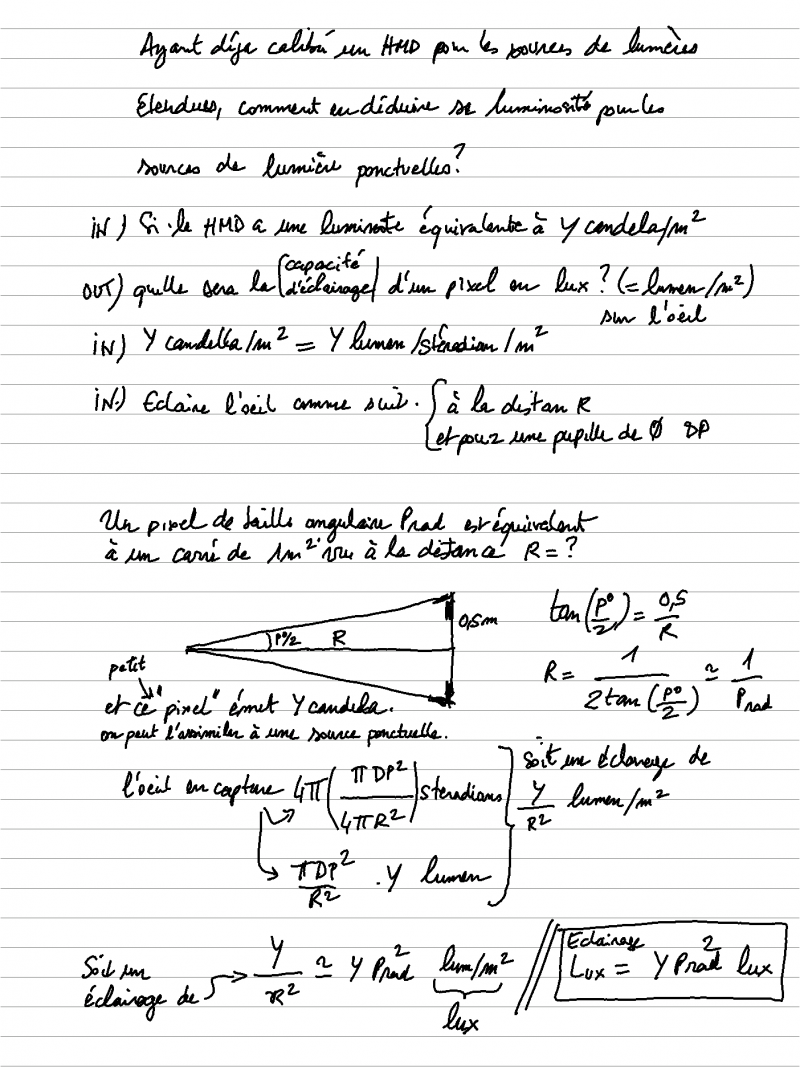 Ayant déja calibré un HMD pour les sources de lumières
Etendues, comment en déduire sa luminosité pour les
sources de lumière ponctuelles?
iN) Si le HMD a une luminosite équivalente à Y candela/m²
OUT) quelle sera la (capacité d'éclairage) d'un pixel en lux? (= lumen/m²)
sur l'oeil
iN) Y candella/m² = Y lumen/stéradian/m²
iN.) Eclaire l'oeil comme suit. { à la distan R
et pour une pupille de Ø DP
Un pixel de taille angulaire Prad est équivalent
à un carré de 1m² vu à la distance R = ?
P°/2 R 0,5m
tan(P°/2) = 0,5/R
R = 1/(2tan(P°/2)) ≃ 1/Prad
petit
et ce "pixel" émet Y candela.
on peut l'assimiler à une source ponctuelle.
l'oeil en capture 4π(πDP²/4πR²) steradians
πDP²/R² . Y lumen
soit une éclairage de
Y/R² lumen/m²
Soit un
éclairage de → Y/R² ≃ Y Prad² lum/m²
lux
Eclairage
Lux = Y Prad² lux